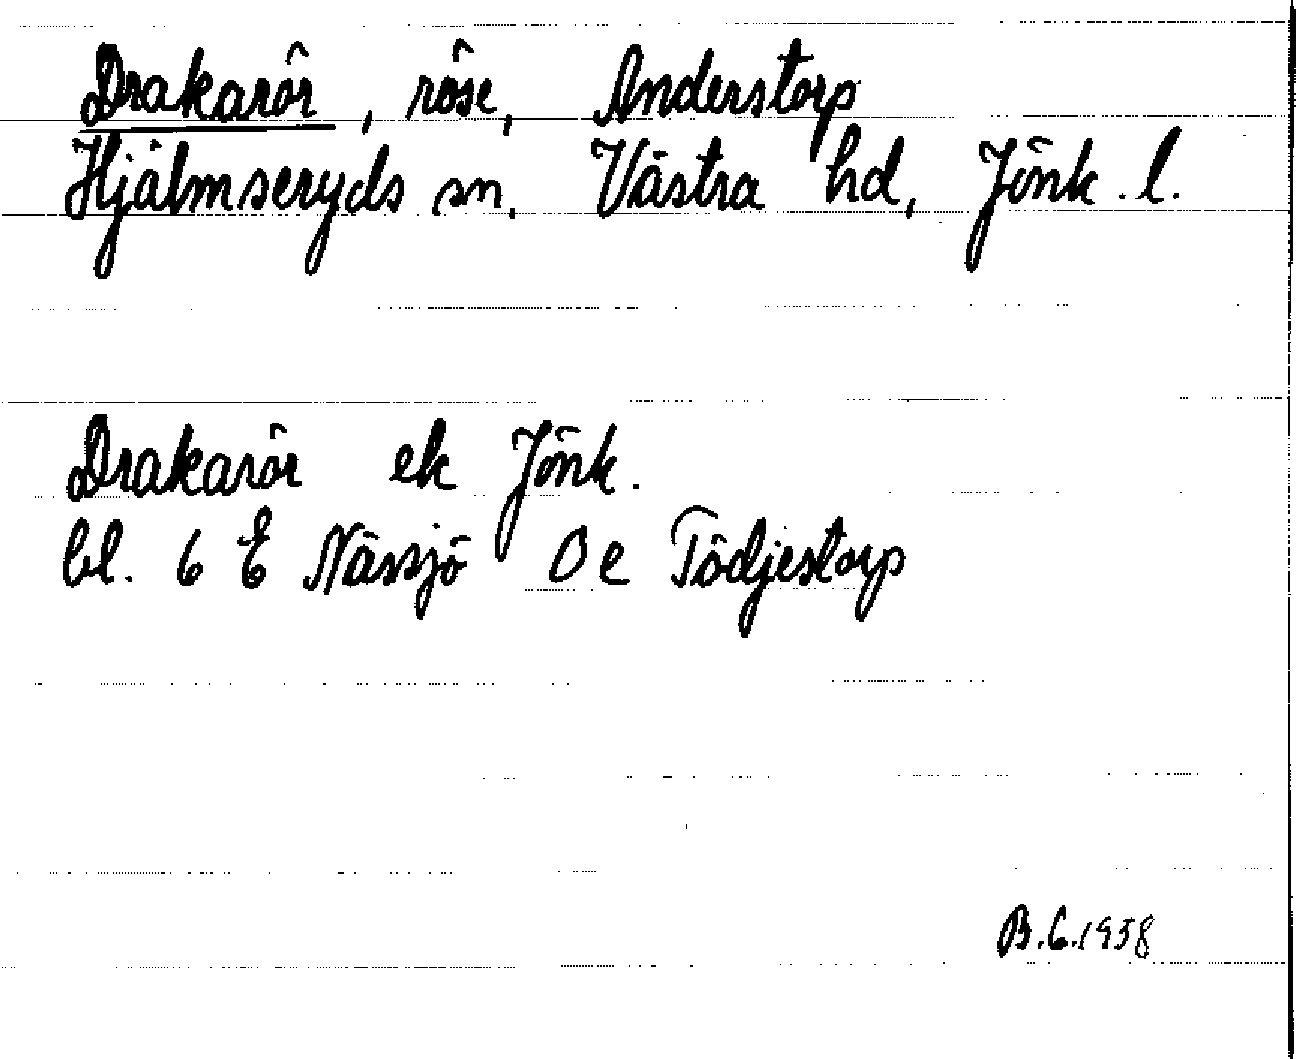 Drakarör, röse, Anderstorp
Hjälmseryds sn, Västra hd, Jönk. l.
Drakarör ek Jönk.
bl. 6 E Nässjö Oe Tödjestorp
B.C.1938